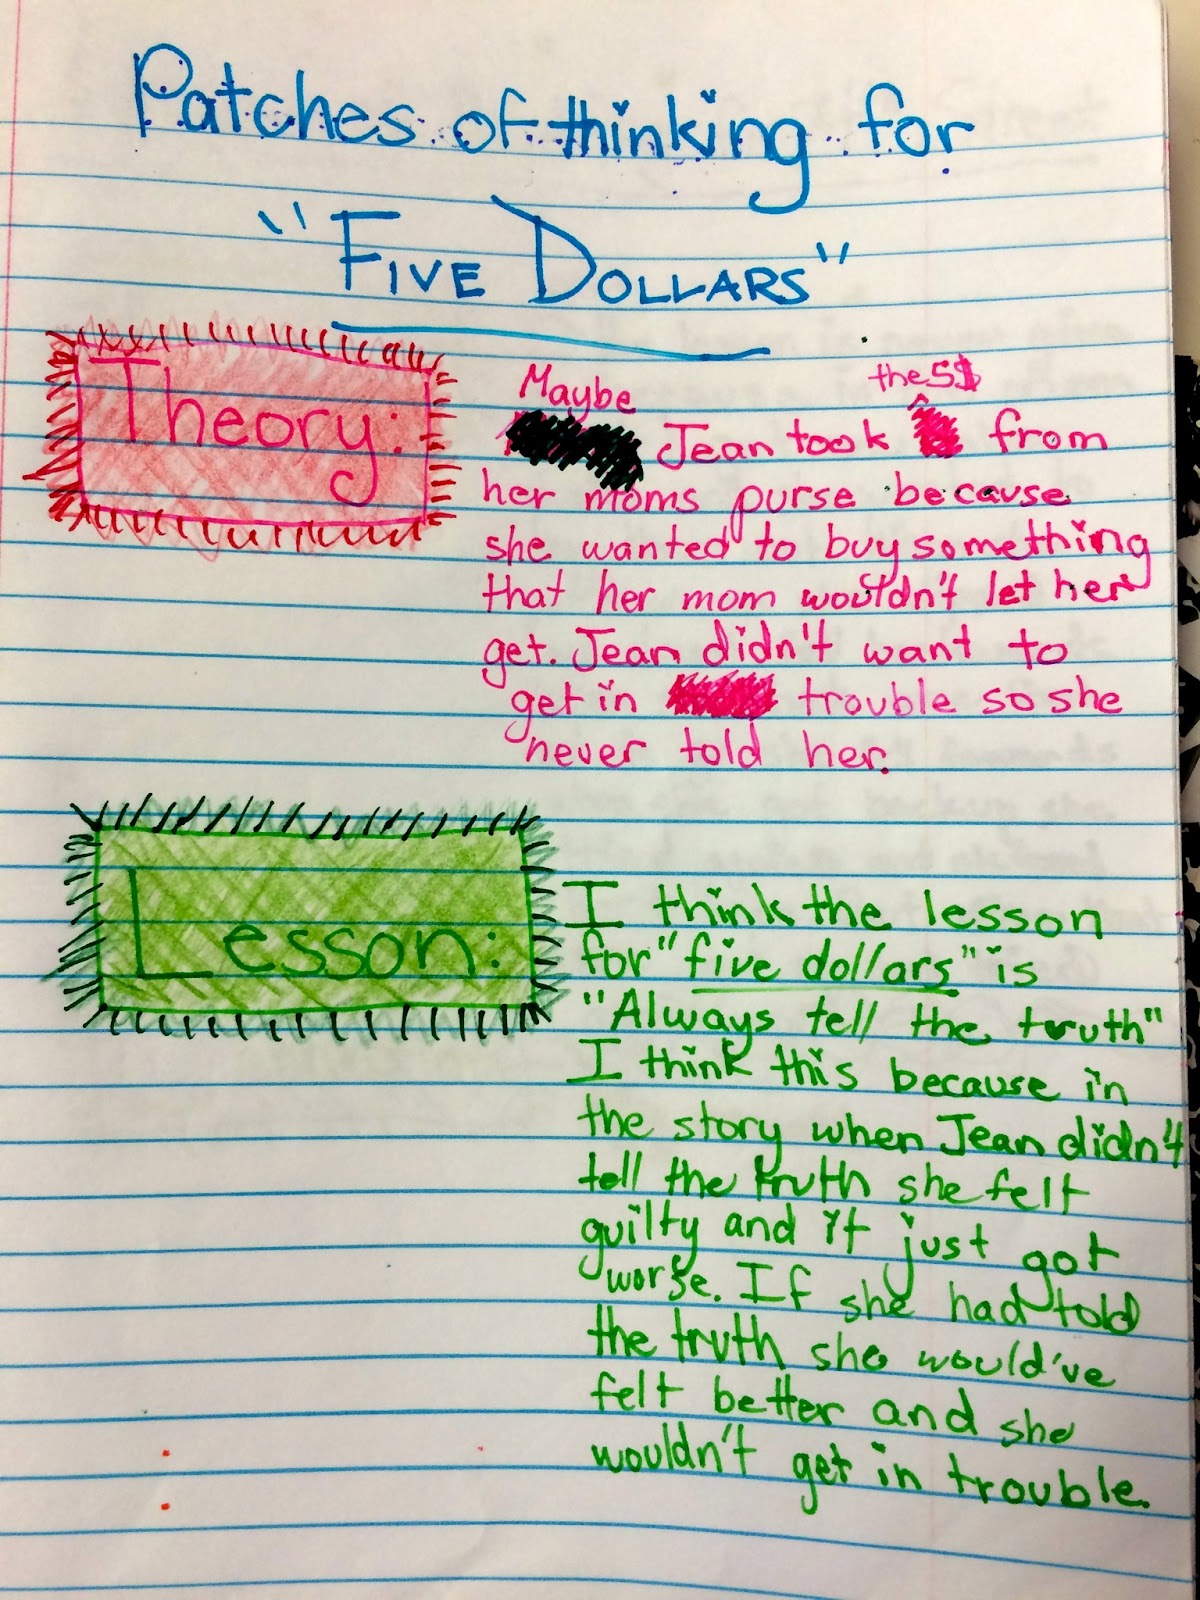 Patches of thinking for
"FIVE DOLLARS"
Theory:
Maybe the 5$
Jean took ^ from
her moms purse because
she wanted to buy something
that her mom wouldn't let her
get. Jean didn't want to
get in trouble so she
never told her.
Lesson:
I think the lesson
for "five dollars" is
"Always tell the truth"
I think this because in
the story when Jean didn't
tell the truth she felt
guilty and it just got
worse. If she had told
the truth she would've
felt better and she
wouldn't get in trouble.